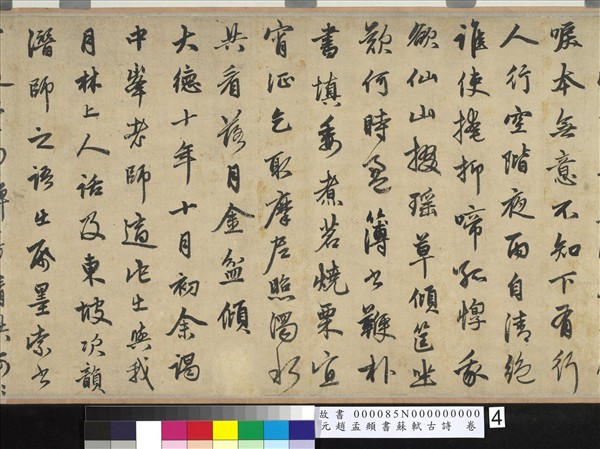 唳本無意不知下有行
人行空階夜雨自清絕
誰使掩抑啼孤惸我
欲仙山掇瑤草傾筐坐
歎何時盈簿書鞭朴
晝填委煮茗燒栗宜
宵征乞取摩尼照濁水
共看落月金盆傾
大德十年十月初余謁
中峯老師適他出與我
月林上人話及東坡次韻
潛師之語出帋墨索書
故書 000085N000000000
元趙孟頫書蘇軾古詩 卷
4